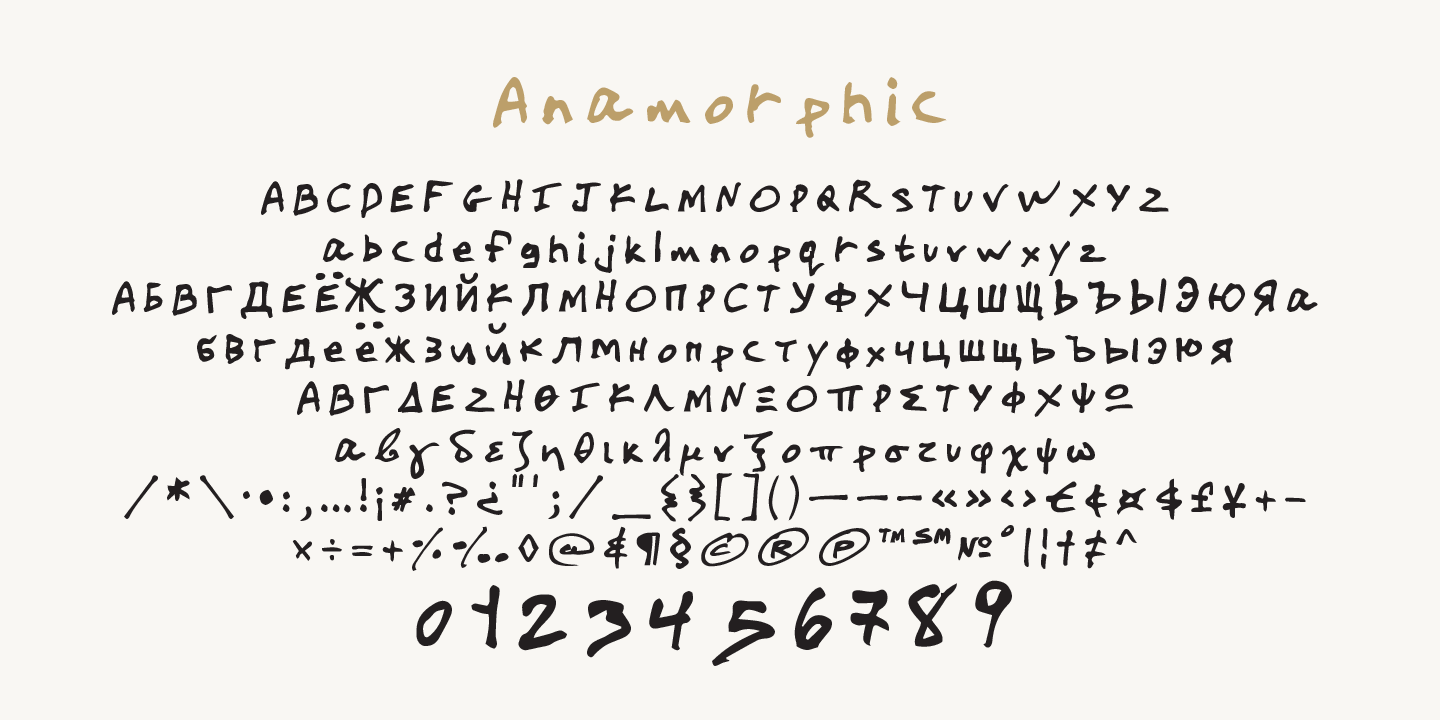 Anamorphic
ABCDEFGHIJKLMNOPQRSTUVWXYZ
abcdefghijklmnopqrstuvwxyz
АБВГДЕЁЖЗИЙКЛМНОПРСТУФХЧЦШЩЬЪЫЭЮЯа
бвгдеёжзийклмнопрстуфхчцшщьъыэюя
ΑΒΓΔΕΖΗΘΙΚΛΜΝΞΟΠΡΣΤΥΦΧΨΩ
αβγδεζηθικλμνξοπρσςυφχψω
/*\·•:,…!¡#.?¿"';/_{}[]()———«»‹›€¢¤$£¥+−
×÷=+%‰◊@&¶§©®℗™℠№°|¦†‡^
0123456789